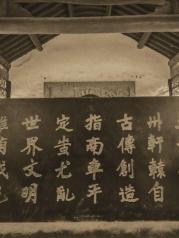 州軒轅自
古傳創造
指南車平
定蚩尤亂
世界文明